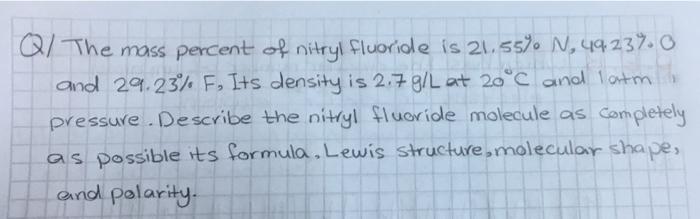 Q/ The mass percent of nitryl fluoride is 21.55% N, 49.23% O
and 29.23% F, Its density is 2.7 g/L at 20°C and 1atm
pressure. Describe the nitryl fluoride molecule as completely
as possible its formula, Lewis structure, molecular shape,
and polarity.